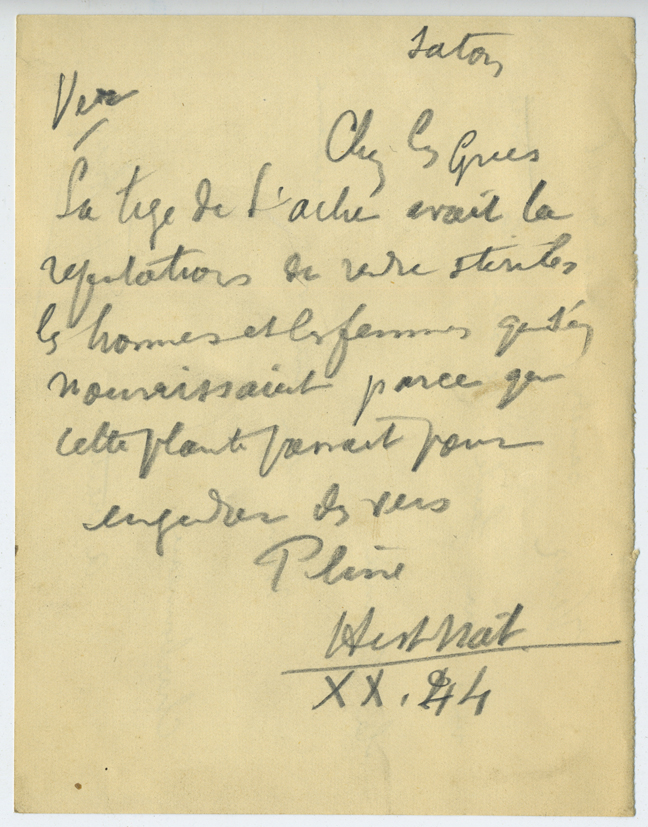 Ver
Chez les Grecs
La tige de l'ache avait la
reputation de rendre steriles
les hommes et les femmes qui s'en
nourrissaient parce que
cette plante passait pour
engendrer des vers
Pline
Hist Nat
XX. 44